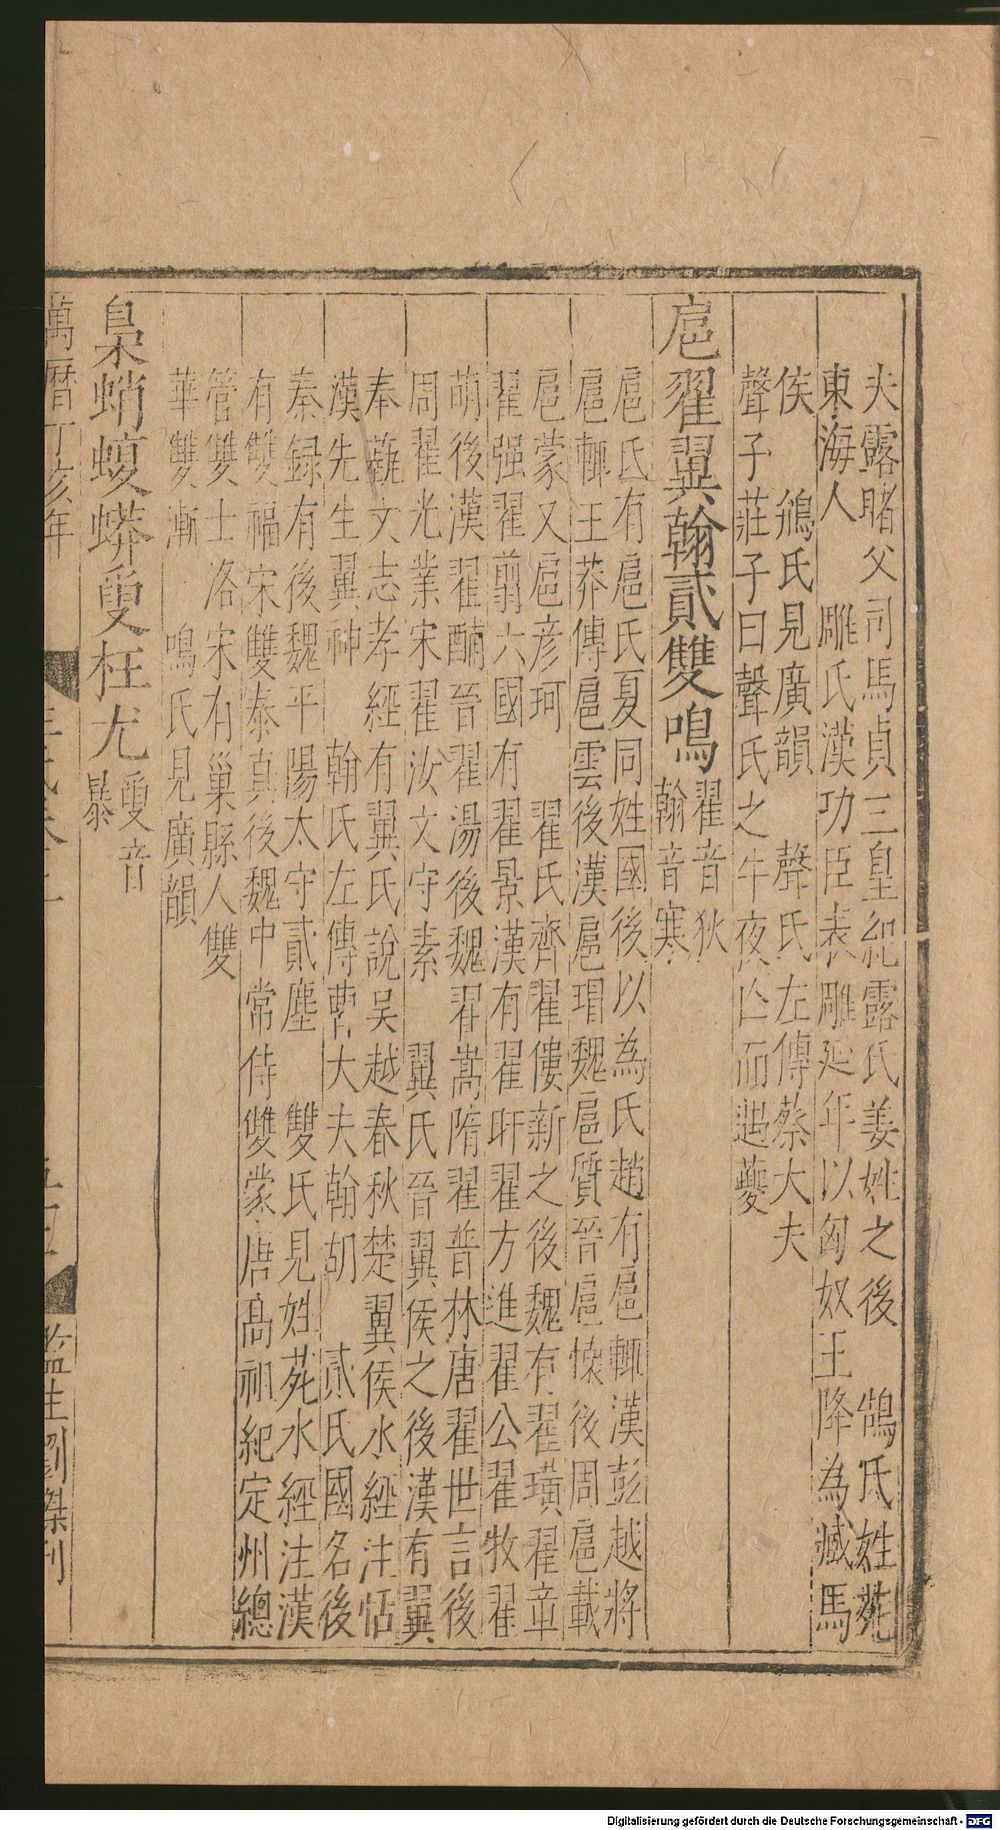 夫露睹父司馬貞三皇紀露氏姜姓之後　鵠氏姓苑
東海人　雕氏漢功臣表雕延年以匈奴王降為臧馬
侯　鵃氏見廣韻　聲氏左傳蔡大夫
聲子莊子曰聲氏之牛夜亡而遇夔
扈翟翼翰貳雙鳴
翟音狄
翰音寒
扈氏有扈氏夏同姓國後以為氏趙有扈輒漢彭越將
扈輒王莽傳扈雲後漢扈瑁魏扈質晉扈懷後周扈載
扈蒙又扈彦珂　翟氏齊翟僂新之後魏有翟璜翟章
翟强翟翦六國有翟景漢有翟盱翟方進翟公翟牧翟
萌後漢翟酺晉翟湯後魏翟嵩隋翟普林唐翟世言後
周翟光業宋翟汝文守素　翼氏晉翼侯之後漢有翼
奉藝文志孝經有翼氏說吳越春秋楚翼侯水經注恬
漢先生翼神　翰氏左傳曹大夫翰胡　貳氏國名後
秦録有後魏平陽太守貳塵　雙氏見姓苑水經注漢
有雙福宋雙泰真後魏中常侍雙蒙唐高祖紀定州總
管雙士洛宋有巢縣人雙
華雙漸　鳴氏見廣韻
梟蛸蝮蟒𡙇枉尤
𡙇音
暴
萬曆丁亥年
監生劉傑刊
Digitalisierung gefördert durch die Deutsche Forschungsgemeinschaft - DFG